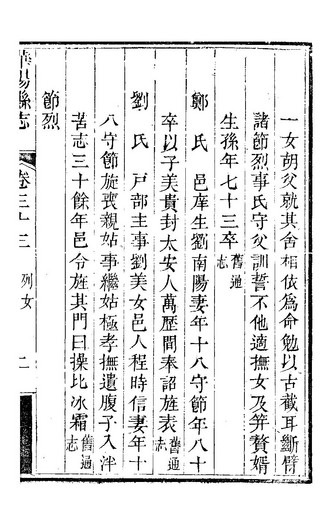 一女胡父就其舍相依為命勉以古截耳斷臂
諸節烈事氏守父訓誓不他適撫女及笄贅婿
生孫年七十三卒舊通志
鄭氏 邑庠生劉南陽妻年十八守節年八十
卒以子美貴封太安人萬歷間奉詔旌表舊通志
劉氏 戸部主事劉美女邑人程時信妻年十
八守節旋喪親姑事繼姑極孝撫遺腹子入泮
苦志三十餘年邑令旌其門曰操比冰霜舊通志
節烈
陽縣志 卷三十三 列女 二